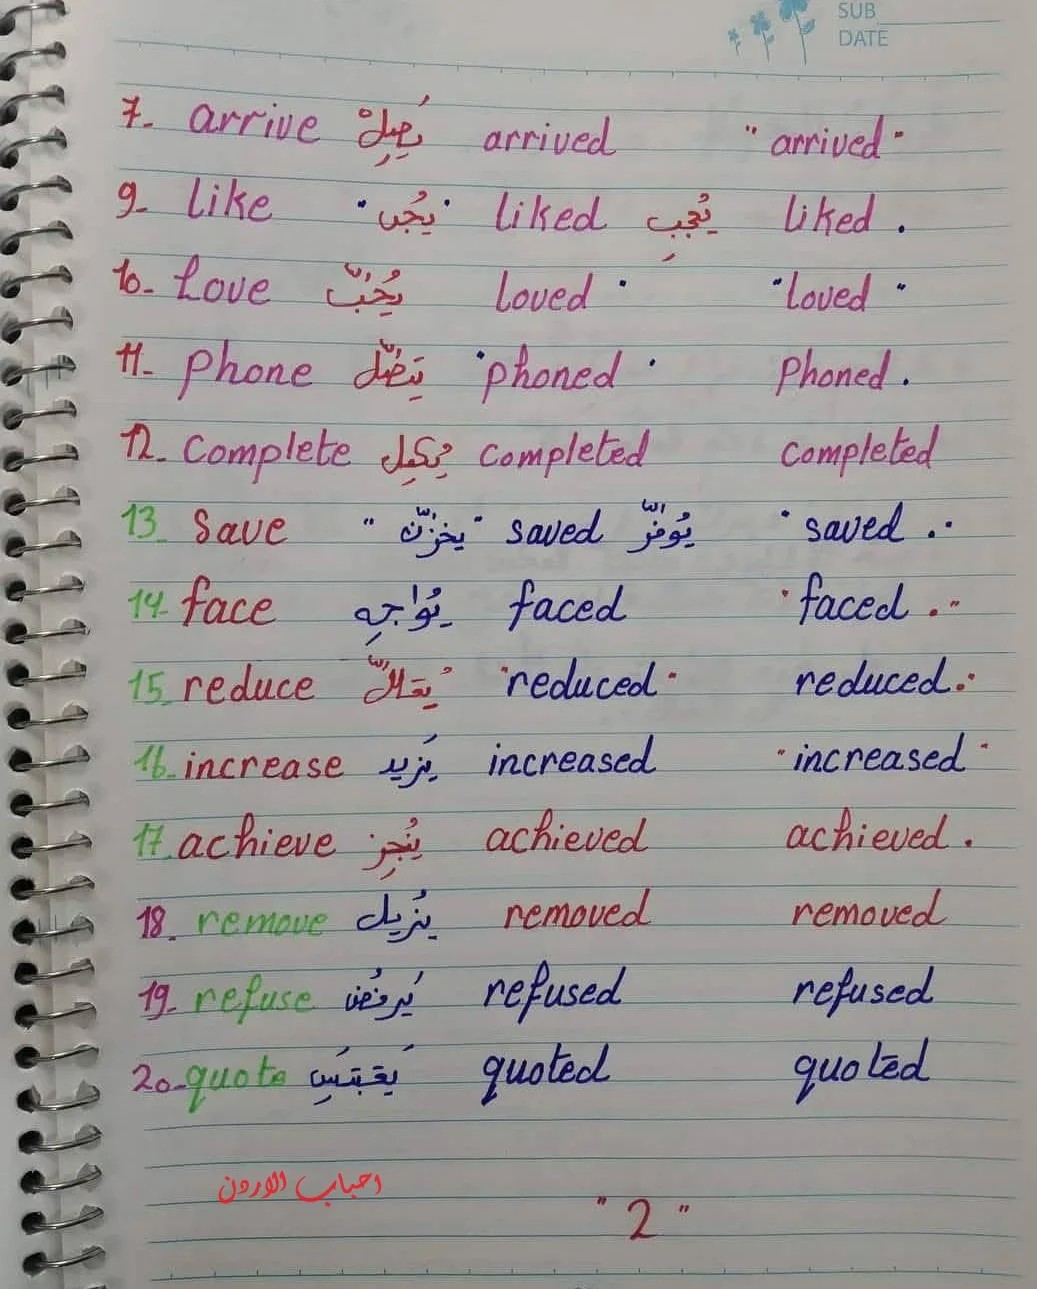 SUB
DATE
7- arrive يَصِلْ arrived "arrived"
9- like "يُحب" liked يُعجِب liked .
10- Love يُحِبّ loved "loved"
11- phone يتصل "phoned" Phoned .
12- complete يُكمِل completed completed
13 save "يخزّن" saved يُوفرّ "saved .
14- face يُواجِه faced "faced ."
15 reduce يُقللّ "reduced" reduced .
16- increase يَزيد increased "increased"
17 achieve يُنجِز achieved achieved .
18- remove يُزيل removed removed
19- refuse يَرفُض refused refused
20- quote يَقتبَسِ quoted quoted
احباب الاردن
"2"